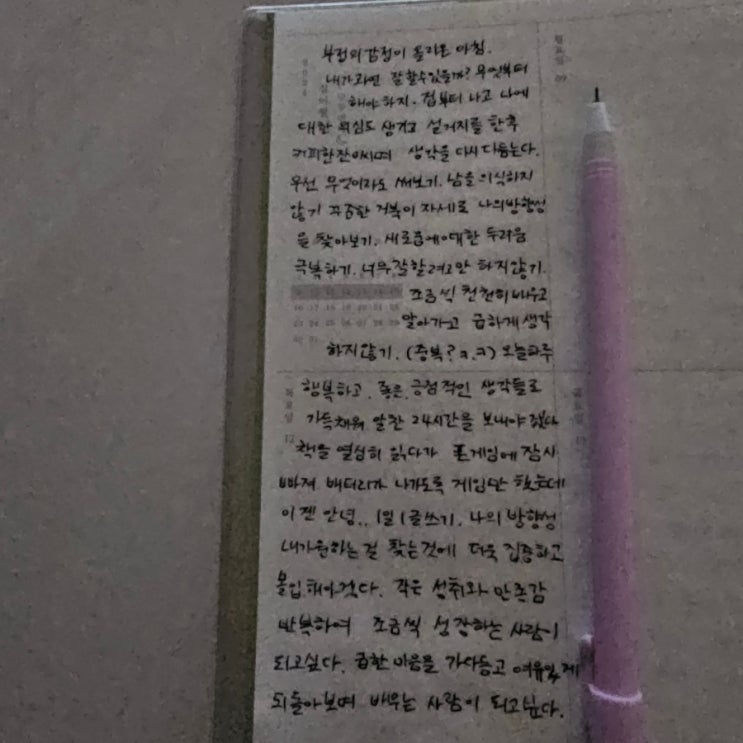 부정의 감정이 올라온 아침.
내가 과연 잘 할수있을까? 무엇부터
해야하지. 겁부터 나고 나에
대한 의심도 생기고 설거지를 한후
커피한잔마시며 생각을 다시 다듬는다.
우선 무엇이라도 써보기. 남을 의식하지
않기 꾸준한 거북이 자세로 나의방향성
을 찾아보기. 새로움에대한 두려움
극복하기. 너무잘할려고만 하지않기.
조금씩 천천히 배우고
알아가고 급하게 생각
하지않기. (중복?ㅋ.ㅋ) 오늘하루
행복하고. 좋은. 긍정적인 생각들로
가득채워 알찬 24시간을 보내야 겠다
책을 열심히 읽다가 폰게임에 잠시
빠져 배터리가 나가도록 게임만 했는데
이젠 안녕.. 1일 1글쓰기. 나의 방향성
내가원하는걸 찾는것에 더욱 집중하고
몰입해야겠다. 작은 성취와 만족감
반복하여 조금씩 성장하는 사람이
되고싶다. 급한 마음을 가다듬고 여유있게
되돌아보며 배우는 사람이 되고싶다.
월요일 09
목요일 12
금요일